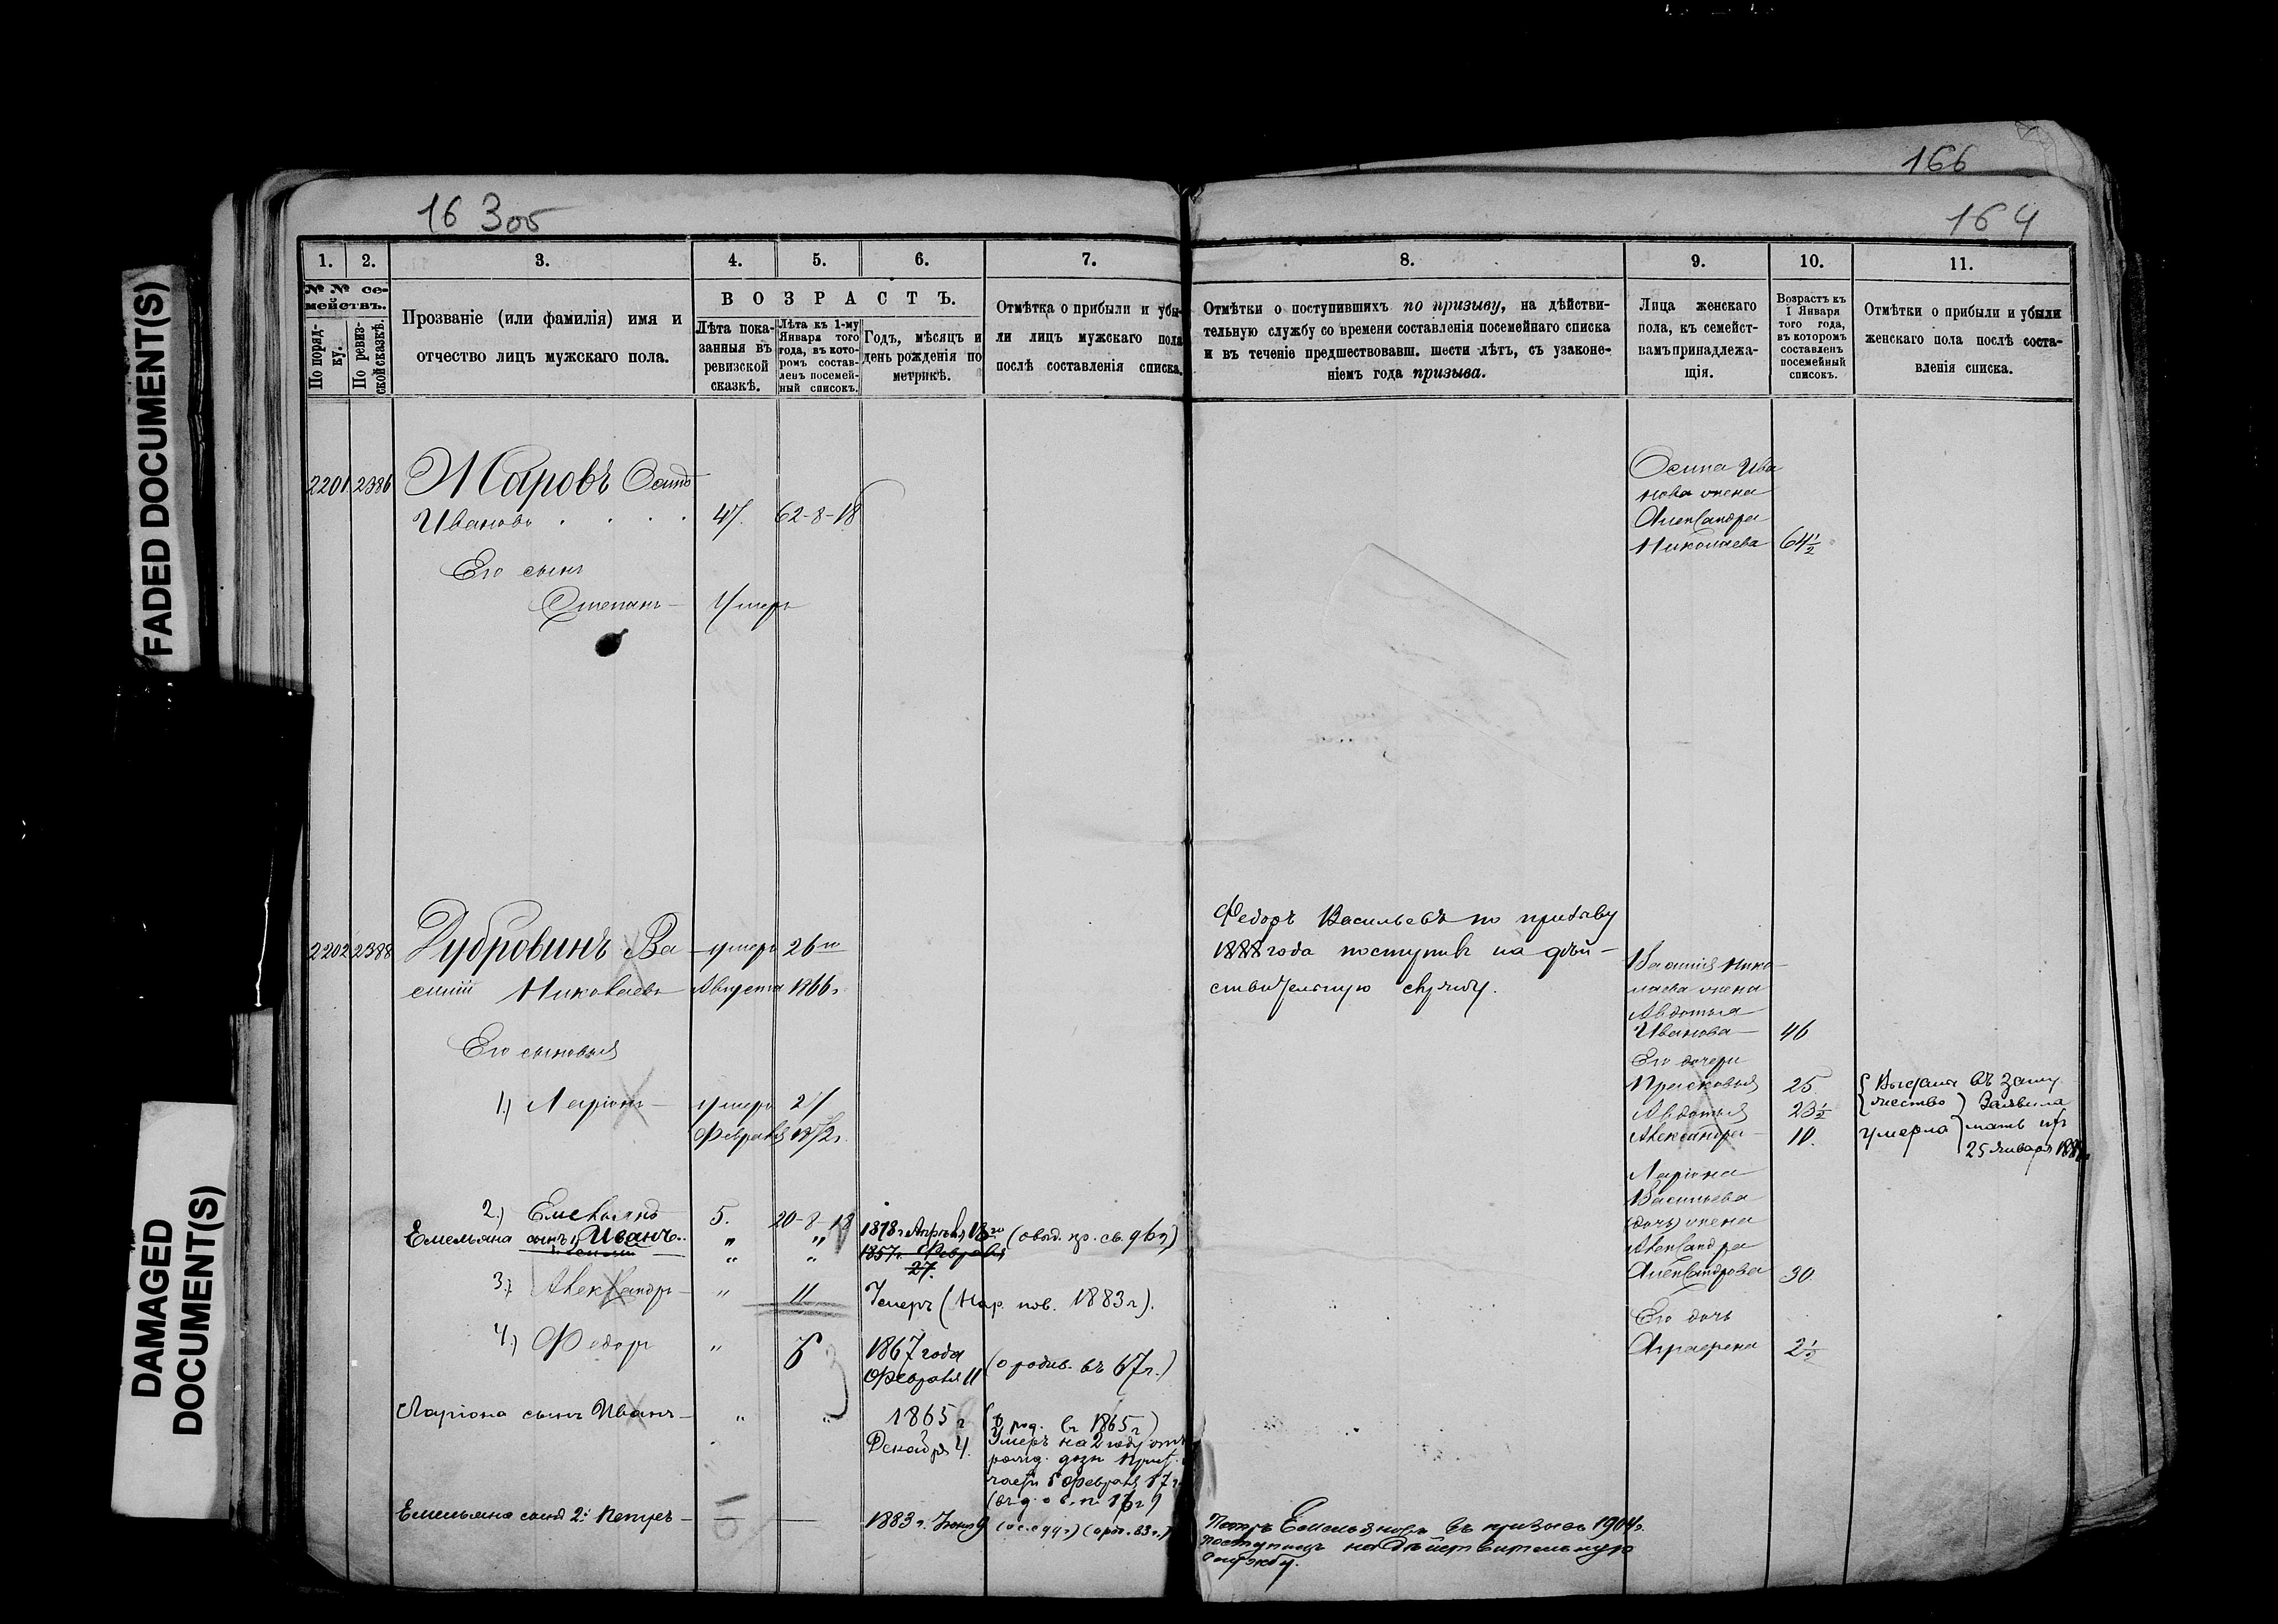 166
16 305
164
FADED DOCUMENT(S)
DAMAGED
DOCUMENT(S)
1. 2. 3. 4. 5. 6. 7. 8. 9. 10. 11.
№ № се-
мействъ.
По поряд-
ку.
По ревиз-
ской сказкѣ.
Прозваніе (или фамилія) имя и
отчество лицъ мужскаго пола.
ВОЗРАСТЪ.
Лѣта пока-
занныя въ
ревизской
сказкѣ.
Лѣта къ 1-му
Января того
года, въ кото-
ромъ состав-
ленъ посемей-
ный списокъ.
Годъ, мѣсяцъ и
день рожденія по
метрикѣ.
Отмѣтка о прибыли и убы-
ли лицъ мужскаго пола
послѣ составленія списка.
Отмѣтки о поступившихъ по призыву, на дѣйстви-
тельную службу со времени составленія посемейнаго списка
и въ теченіе предшествовавш. шести лѣтъ, съ узаконе-
ніемъ года призыва.
Лица женскаго
пола, къ семейст-
вамъ принадлежа-
щія.
Возрастъ къ
1 Января
того года,
въ которомъ
составленъ
посемейный
списокъ.
Отмѣтки о прибыли и убыли
женскаго пола послѣ соста-
вленія списка.
2201 2386 Жаровъ Осипъ
Ивановъ . . . . 47. 62-8-18
Его сынъ
Степанъ — Умеръ
Осипа Ива
нова жена
Александра
Николаева 64½
2202 2388 Дубровинъ Ва — умеръ 26го
силій Николаевъ Августа 1866 г.
Его сыновья
1.) Ларіонъ — умеръ 21
Февраля 1872 г.
2.) Емельянъ 5. 20-8-18
Емельяна сынъ 1, Иванъ.. „ „ 1878 г. Апрѣля 18го
„ „ 1857 г. Февраля
27.
3.) Александръ — „ 11 Умеръ (Нар. пов. 1883 г).
4.) Федоръ „ 8 1867 года
Февраля 11 (о родив. въ 67 г.)
Ларіона сынъ Иванъ — „ „ 1865 г
Декабря 4.
( род. въ 1865 г)
Умеръ на 2 году отъ
Емельяна сынъ 2й Петръ — — 1883 г. Іюня 9
Федоръ Васильевъ по призыву
1888 года поступилъ на дѣй-
ствительную службу.
Петръ Емельяновъ въ призывъ 1904 г.
поступилъ на дѣйствительную
службу.
Василія Нико-
лаева жена
Авдотья
Иванова — 46
Его дочери
Прасковья 25
Авдотья 23½
Александра — 10.
Выданы въ заму-
жество
Умерла
Заявила
мать ихъ
25 Января
Ларіона
Васильева
жена
Александра
Александрова 30
Его дочь
Аграфена 2½